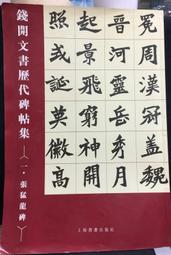 冕周漢冠盖魏
晉河靈岳秀月
起景飛窮神開
照式誕英徽高
錢開文書歷代碑帖集
一·張猛龍碑
上海書畫出版社